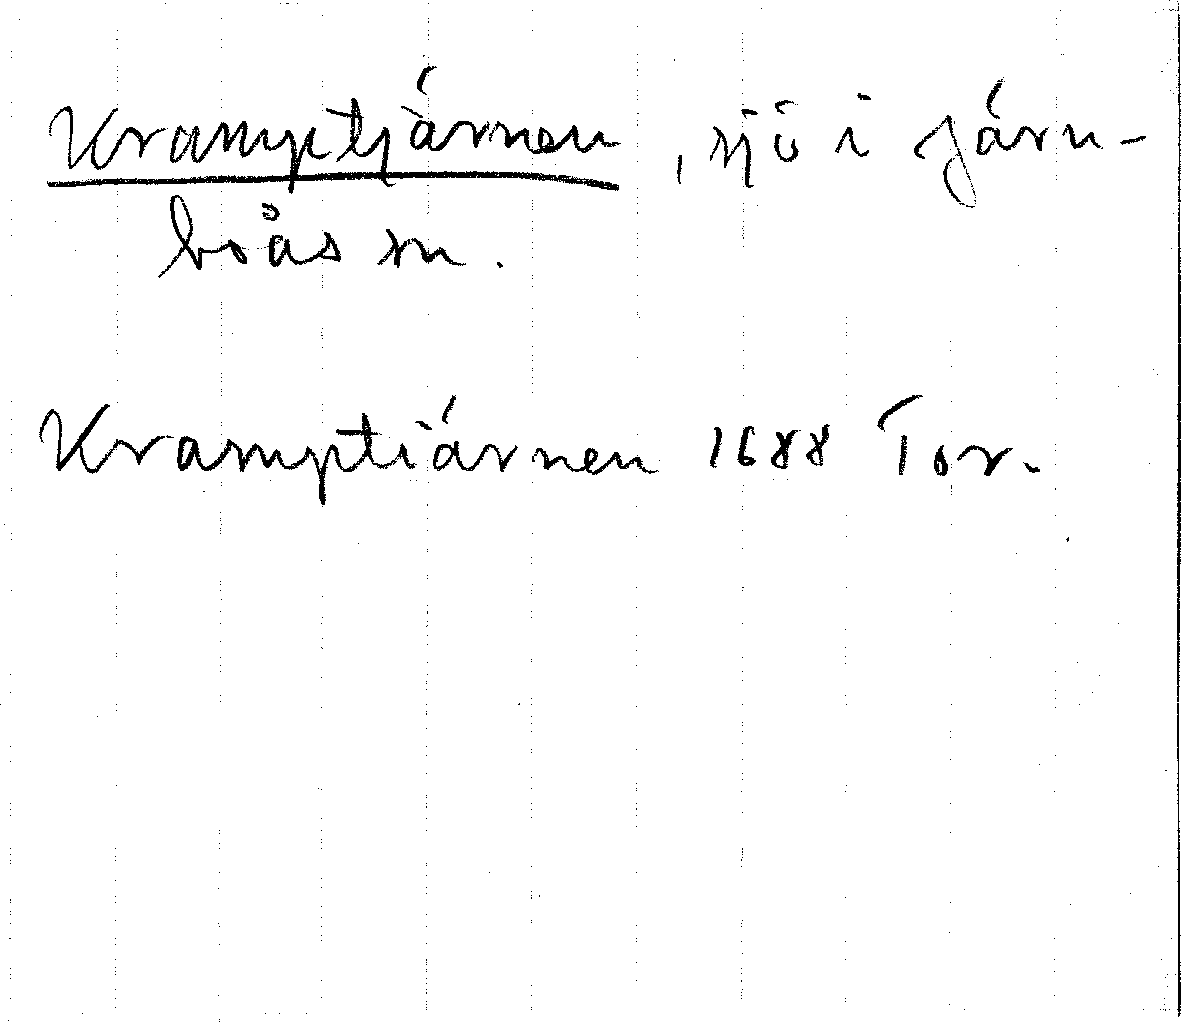 Kramptjärnen, sjö i Järn-
boås sn.
Kramptiärnen 1688 Tor.